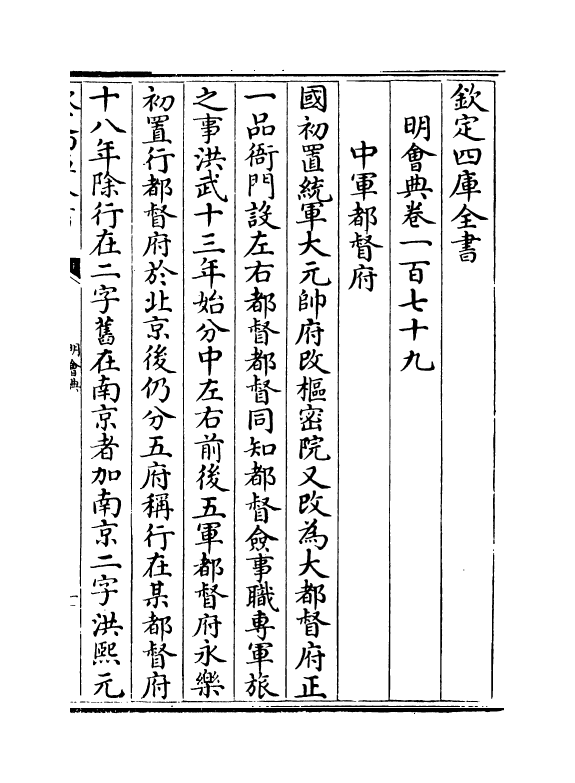 欽定四庫全書
明會典卷一百七十九
中軍都督府
國初置統軍大元帥府改樞密院又改為大都督府正
一品衙門設左右都督都督同知都督僉事職專軍旅
之事洪武十三年始分中左右前後五軍都督府永樂
初置行都督府於北京後仍分五府稱行在某都督府
十八年除行在二字舊在南京者加南京二字洪熙元
明會典